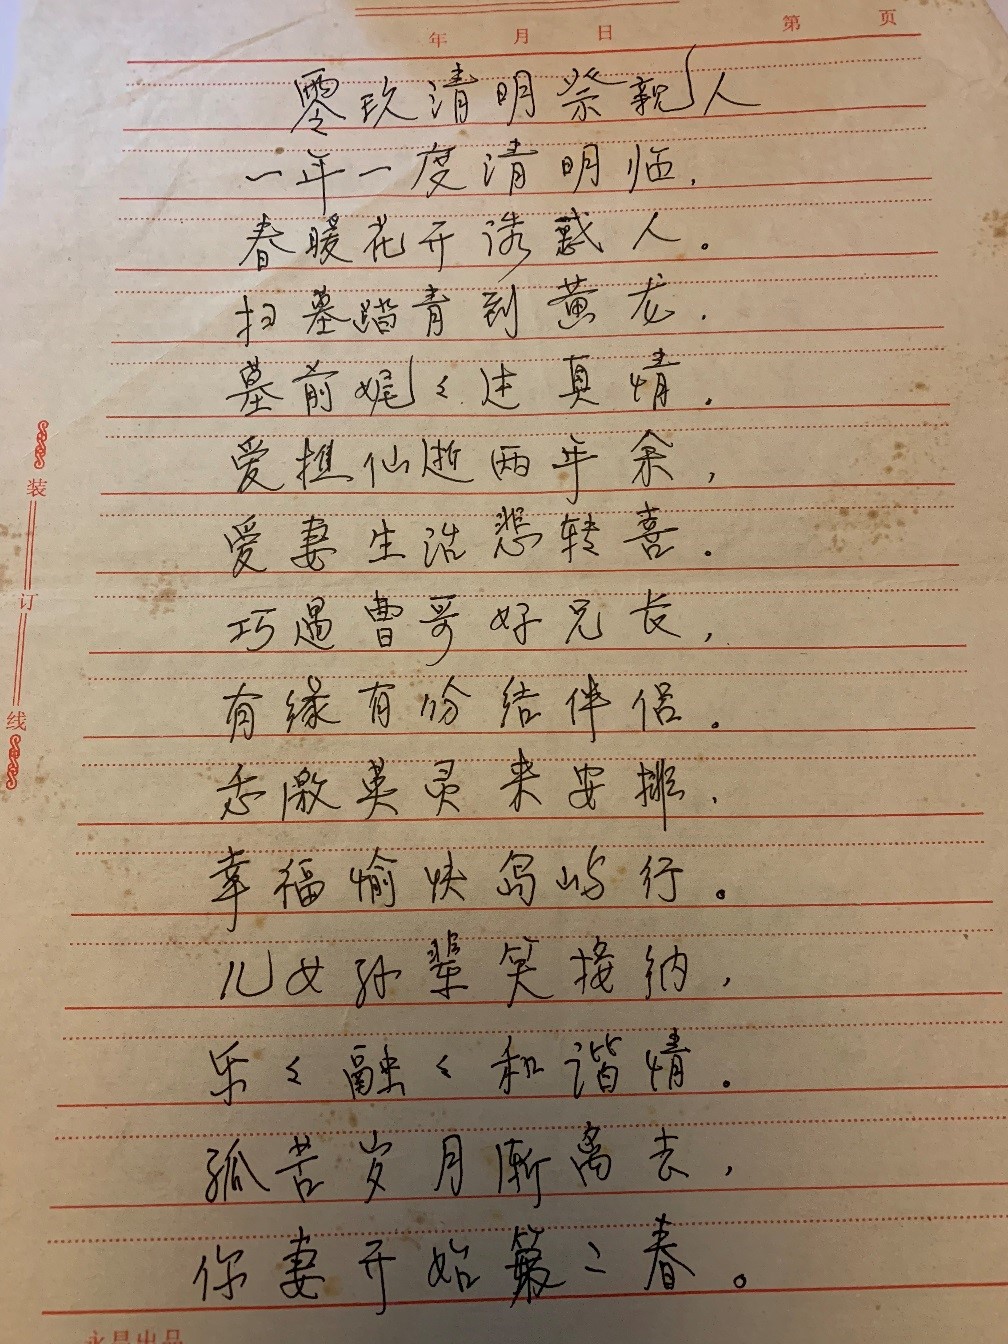 年 月 日 第 页
零玖清明祭亲人
一年一度清明临，
春暖花开诱惑人。
扫墓踏青到黄龙，
墓前娓々述真情。
爱樵仙逝两年余，
爱妻生活悲转喜。
巧遇曹哥好兄长，
有缘有份结伴侣。
感激英灵来安排，
幸福愉快岛屿行。
儿女孙辈笑接纳，
乐々融々和谐情。
孤苦岁月渐离去，
你妻开始第二春。
装
订
线
永昌出品